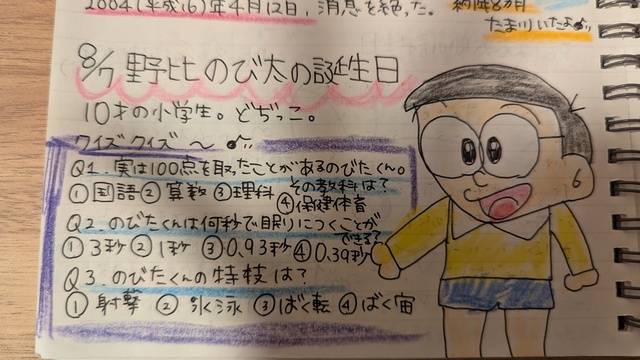 2004(平成16)年4月12日、消息を絶った。
約1年8カ月
たま川いたよ
8/7 野比のび太の誕生日
10才の小学生。どぢっこ。
クイズクイズ〜
Q1. 実は100点を取ったことがあるのびたくん。
その教科は?
①国語②算数③理科④保健体育
Q2. のびたくんは何秒で眠りにつくことができる?
①3秒②1秒③0.93秒④0.39秒
Q3. のびたくんの特技は?
①射撃 ②水泳 ③ばく転 ④ばく宙